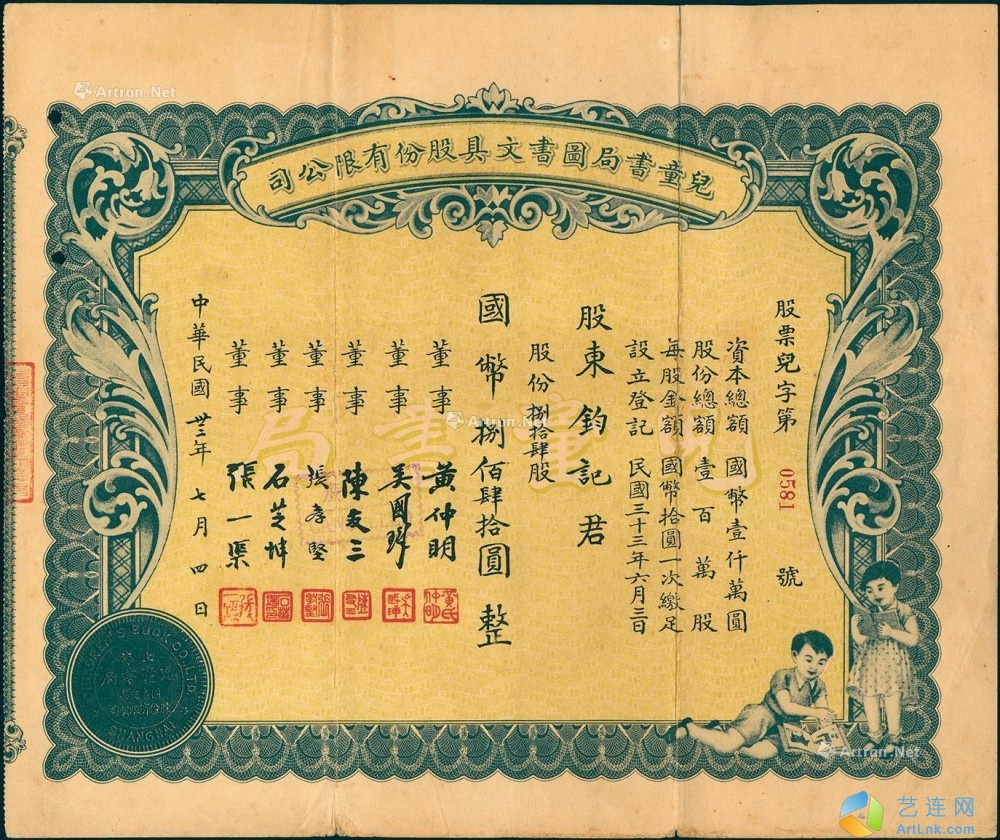 兒童書局圖書文具股份有限公司
股票兒字第 0581 號
資本總額 國幣壹仟萬圓
股份總額 壹百萬股
每股金額 國幣拾圓一次繳足
設立登記 民國三十三年六月三日
股東 鈞記 君
股份捌拾肆股
國幣捌佰肆拾圓整
董事 黃仲明
董事 吳國
董事 陳友三
董事 張孝堅
董事 石芝坤
董事 張一渠
中華民國卅三年七月四日
兒童書局
CO. LTD.
SHANGHAI
Artron.Net
Artron.Net
Artron.Net
艺连网
ArtLnk.com